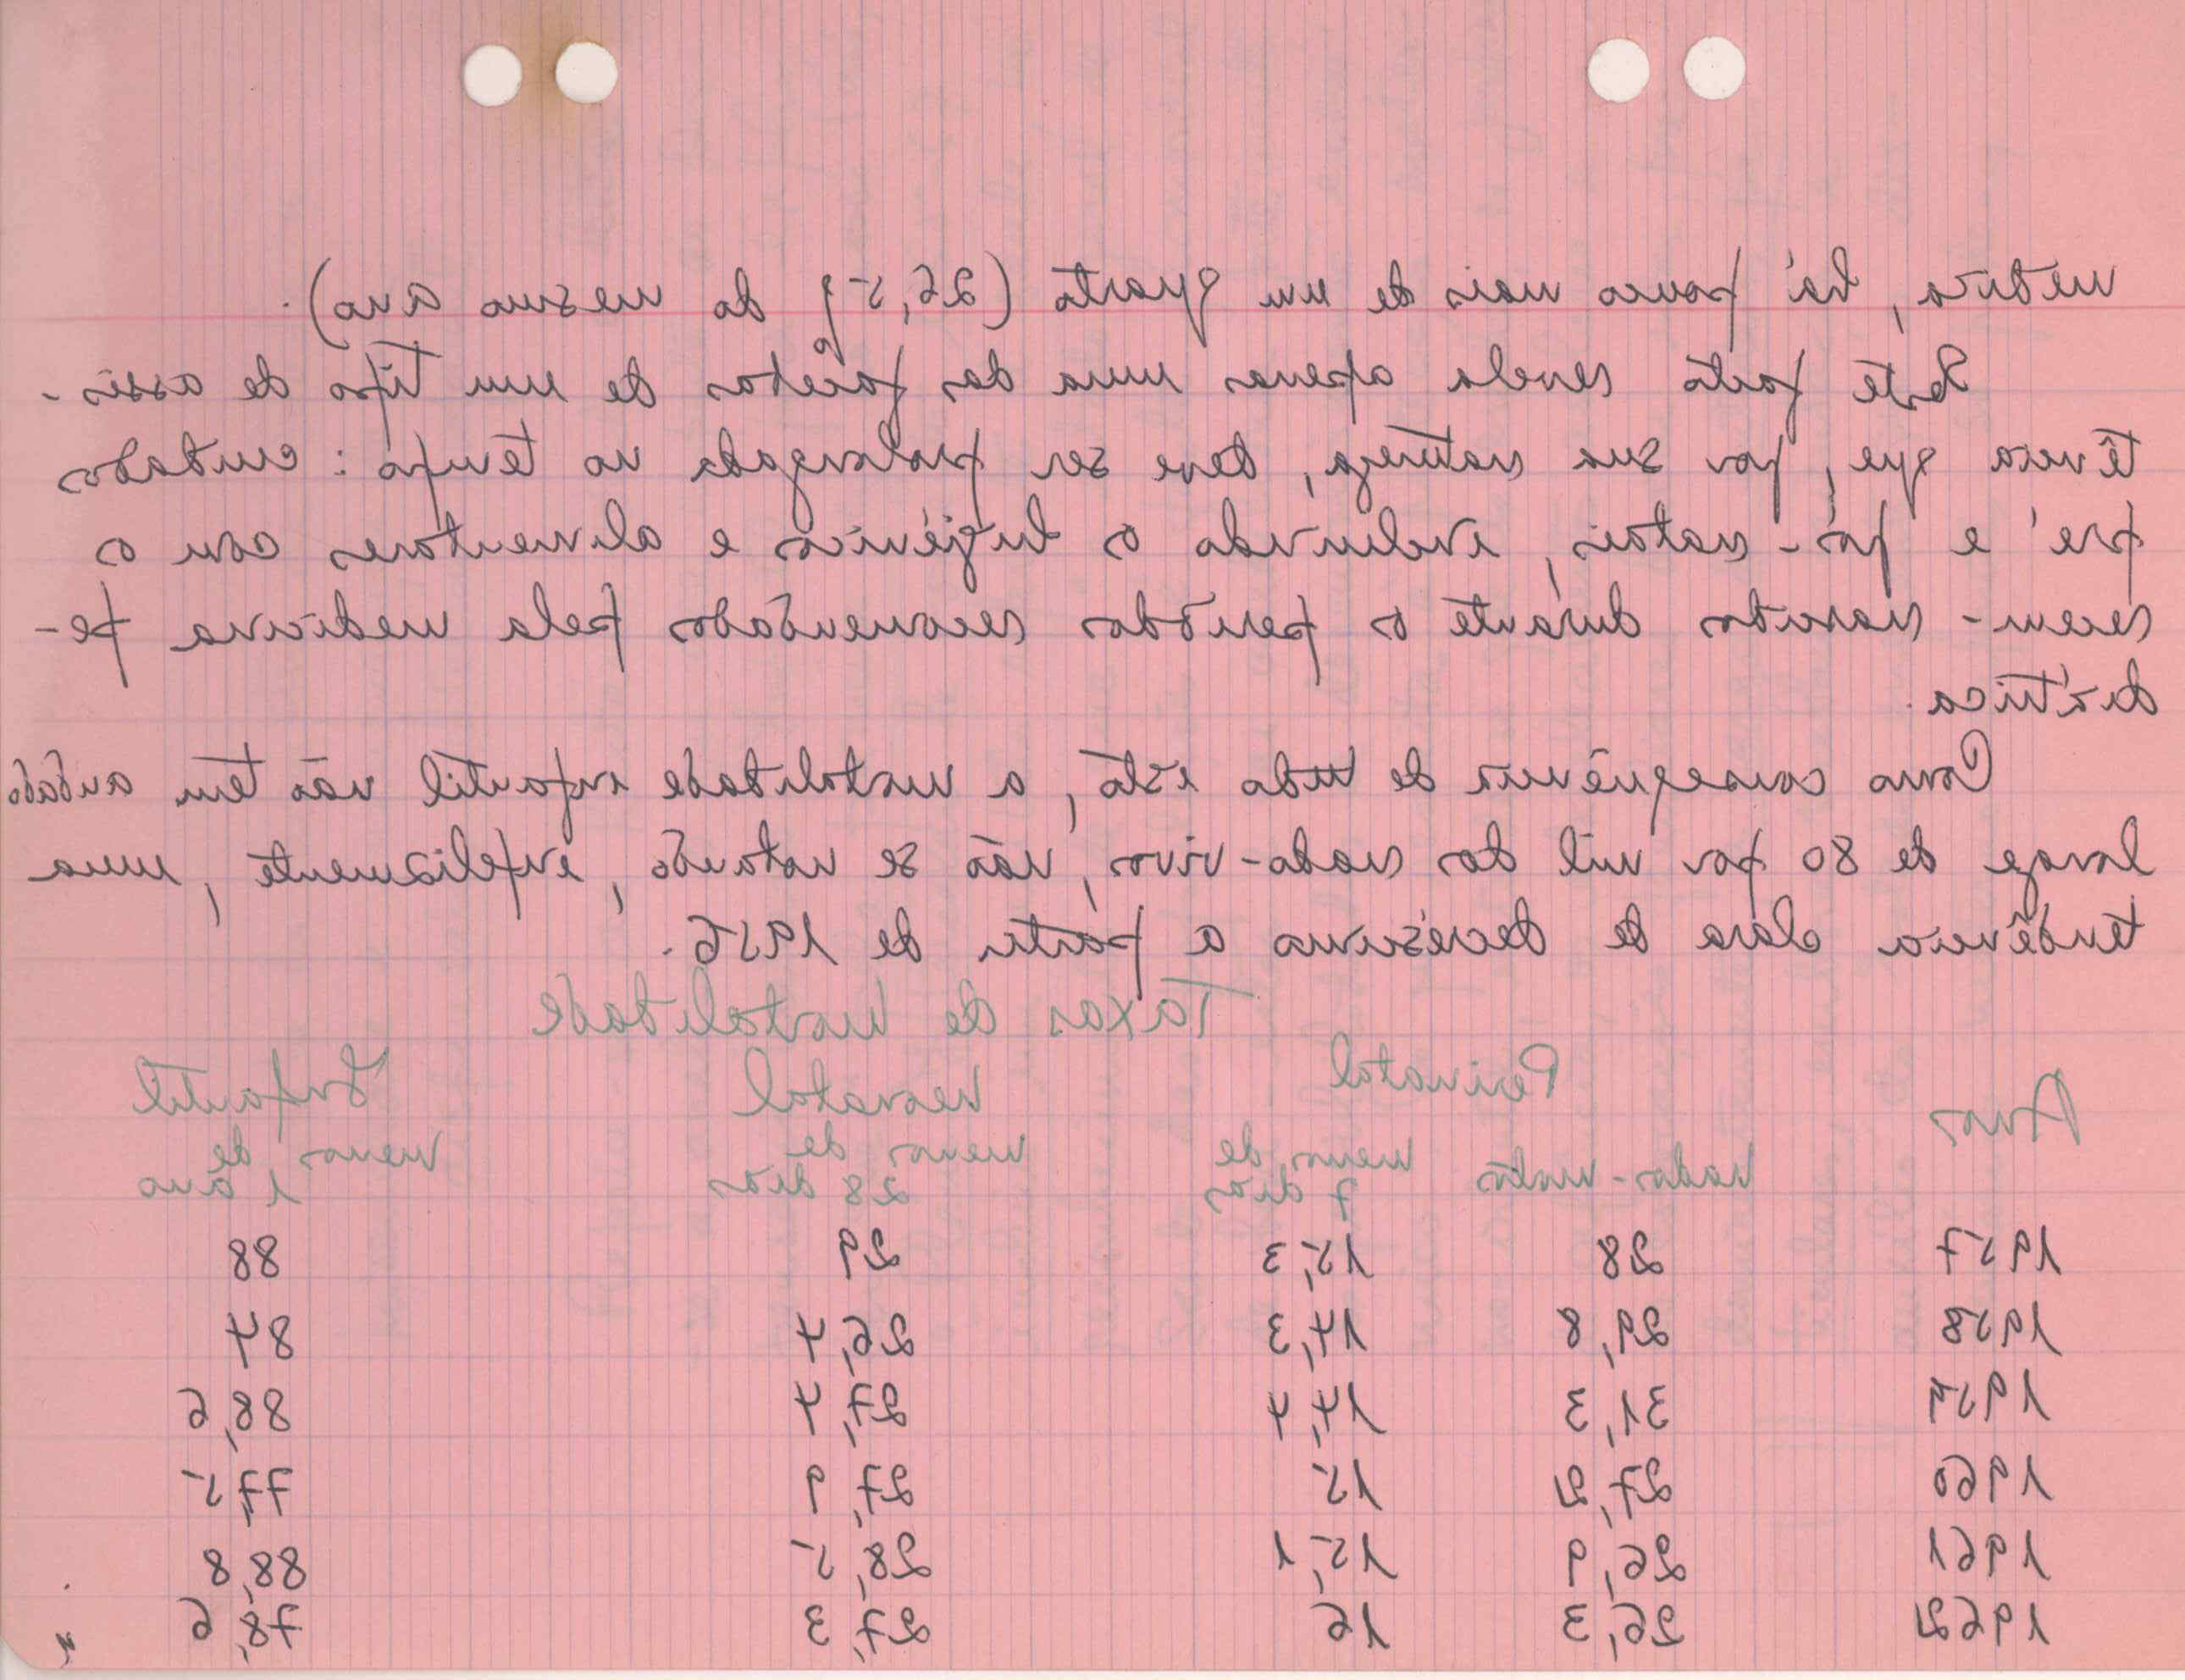 médica, há pouco mais de um quarto (26,5% do mesmo ano).
Este facto revela apenas uma das facetas de um tipo de assis-
tência que, por sua natureza, deve ser prolongada no tempo: cuidados
pré e pós-natais, incluindo os higiénicos e alimentares com os
recem-nascidos durante os períodos recomendados pela medicina pe-
diátrica.
Como consequência de tudo isto, a mortalidade infantil não tem andado
longe de 80 por mil dos nado-vivos, não se notando, infelizmente, uma
tendência clara de decréscimo a partir de 1956.
Taxas de Mortalidade
Anos Perinatal Neonatal Infantil
nados-mortos menos de 7 dias menos de 28 dias menos de 1 ano
1957 28 15,3 29 88
1958 29,8 14,3 26,4 84
1959 31,3 14,4 27,4 88,6
1960 27,2 15 27,9 77,5
1961 26,9 15,1 28,5 88,8
1962 26,3 16 27,3 78,6